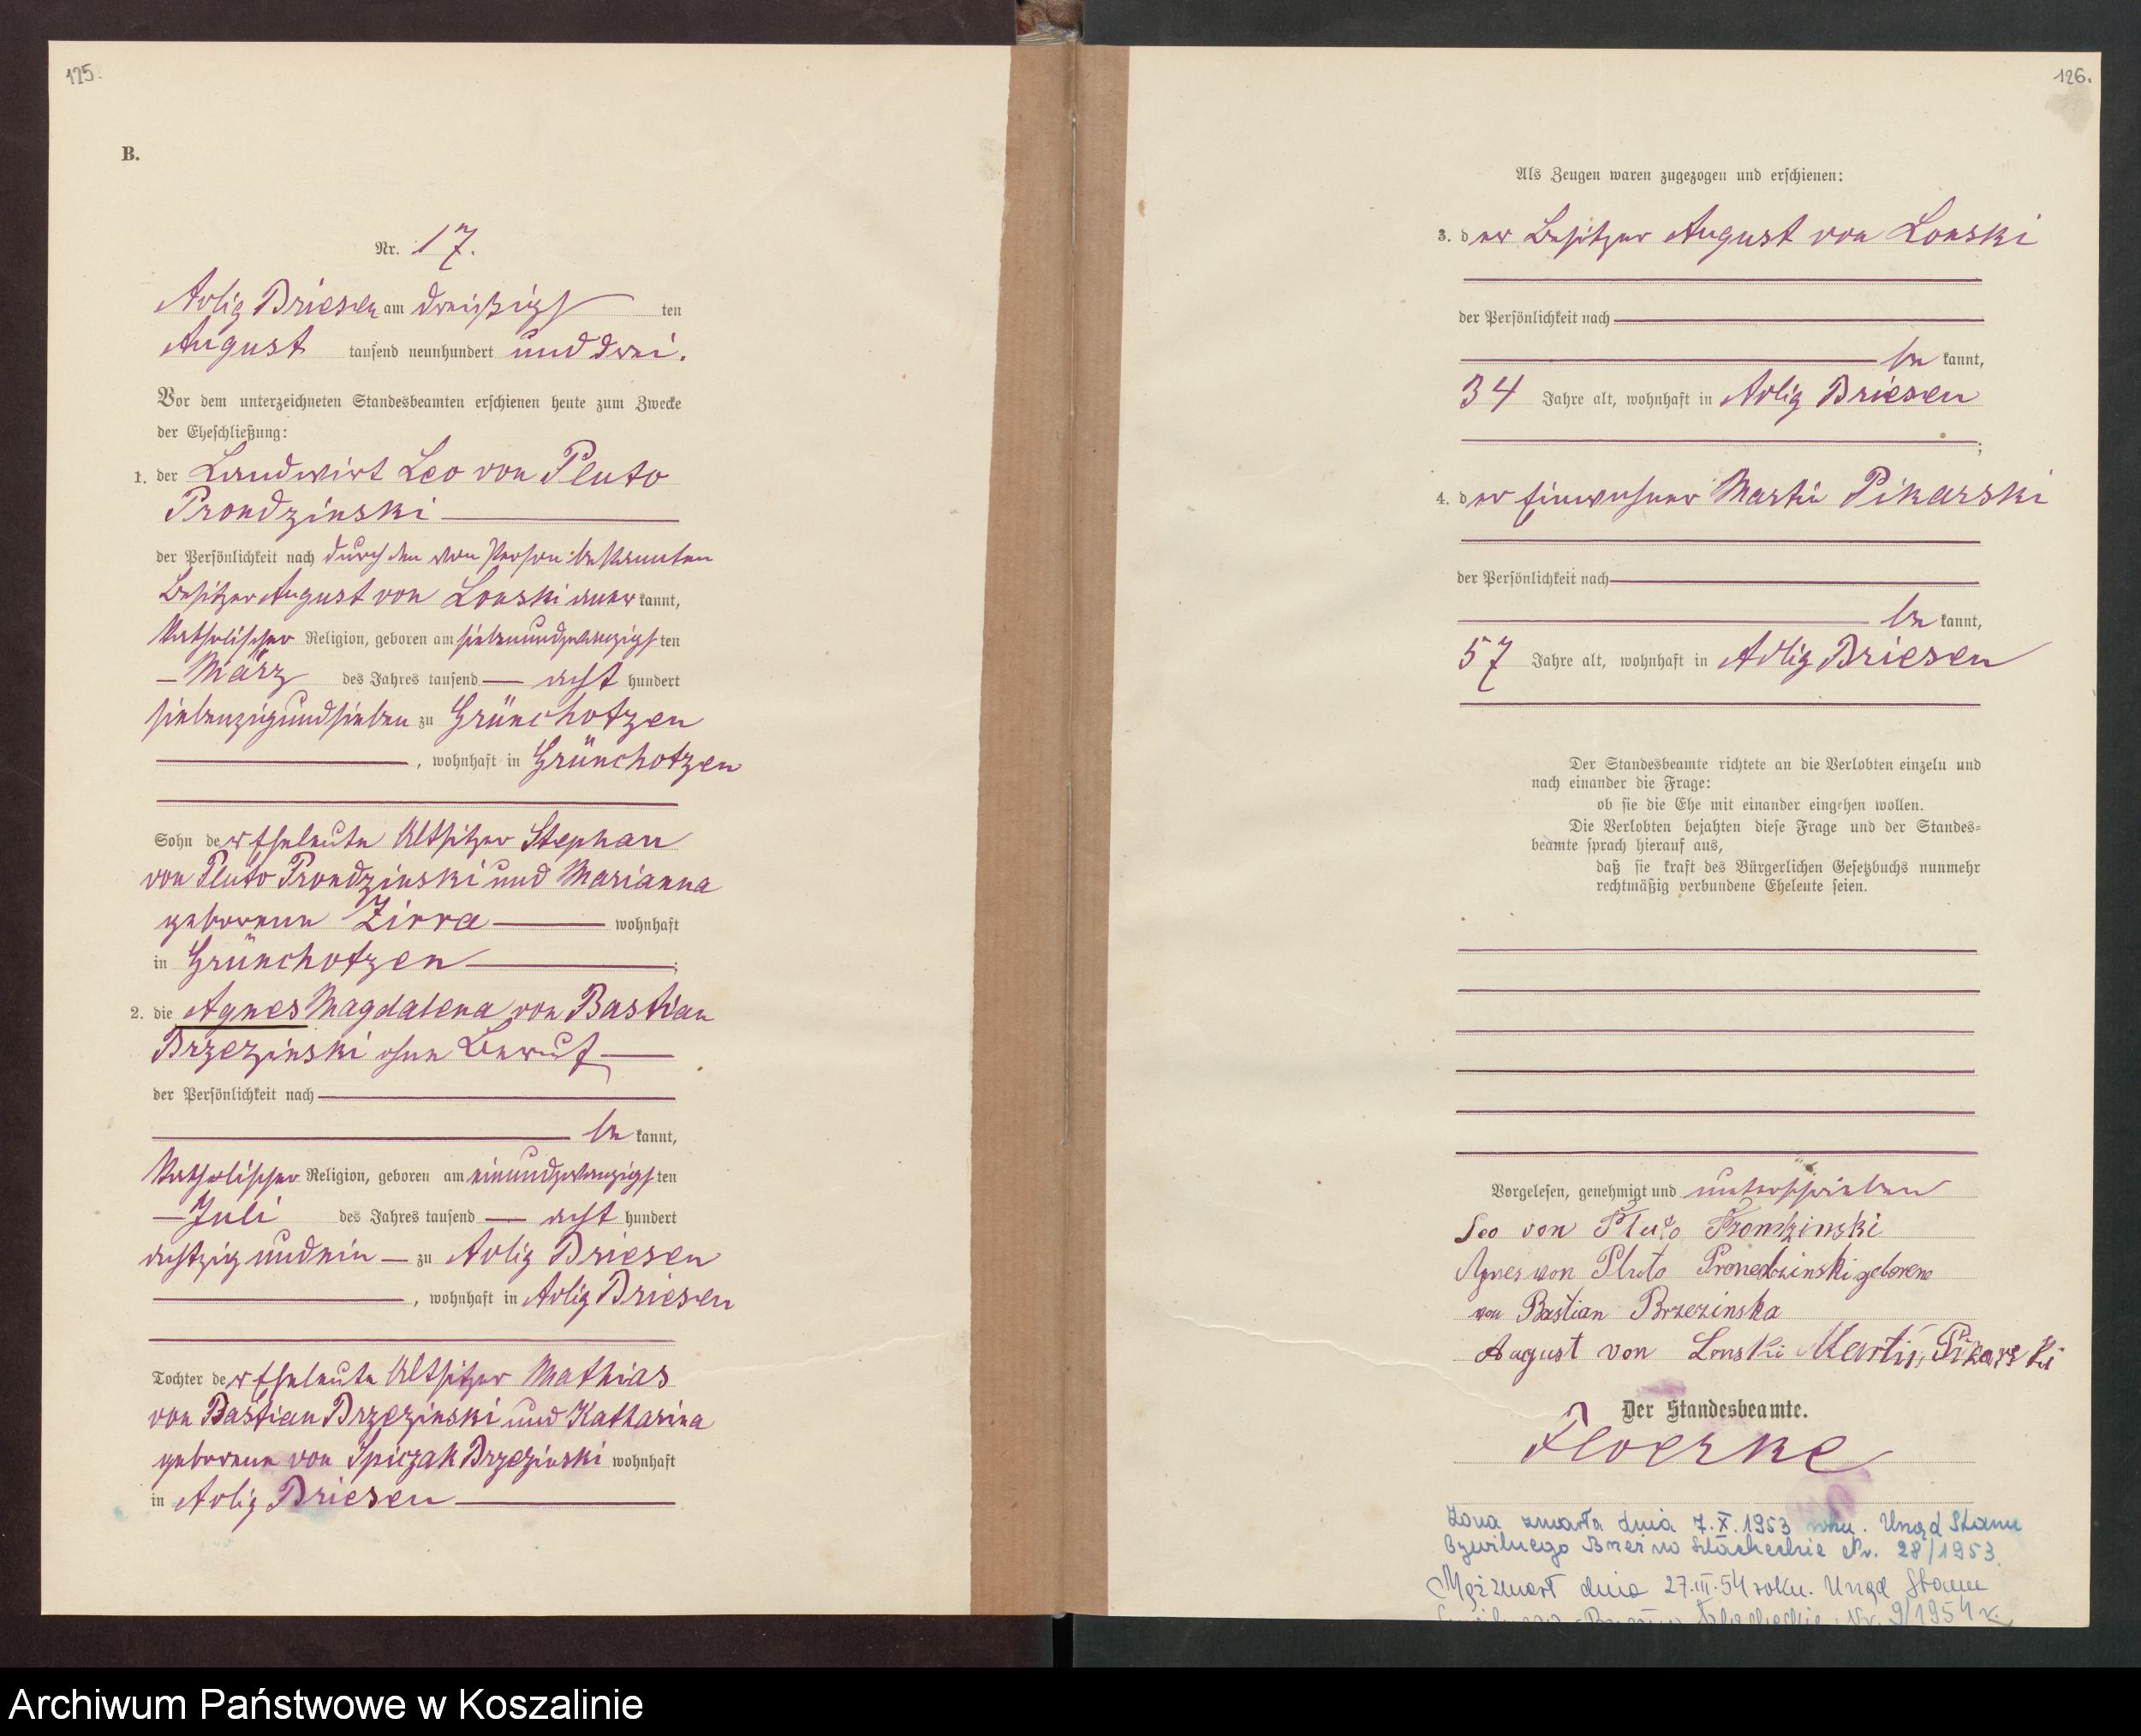 125.
B.
Nr. 17.
Adlig Briesen am dreißigsten
August tausend neunhundert und drei.
Vor dem unterzeichneten Standesbeamten erschienen heute zum Zwecke
der Eheschließung:
1. der Landwirt Leo von Pluto
Prondzinski
der Persönlichkeit nach durch den von Person bekannten
Besitzer August von Lonski anerkannt,
katholischer Religion, geboren am siebenundzwanzigsten
März des Jahres tausend acht hundert
siebenzigundsieben zu Grünchotzen
, wohnhaft in Grünchotzen
Sohn der Eheleute Altsitzer Stephan
von Pluto Prondzinski und Marianna
geborene Zirra wohnhaft
in Grünchotzen ;
2. die Agnes Magdalena von Bastian
Brzezinski ohne Beruf
der Persönlichkeit nach
bekannt,
katholischer Religion, geboren am einundzwanzigsten
Juli des Jahres tausend acht hundert
achtzig und ein zu Adlig Briesen
, wohnhaft in Adlig Briesen
Tochter der Eheleute Altsitzer Mathias
von Bastian Brzezinski und Katharina
geborene von Spiczak Brzezinski wohnhaft
in Adlig Briesen
126.
Als Zeugen waren zugezogen und erschienen:
3. der Besitzer August von Lonski
der Persönlichkeit nach
bekannt,
34 Jahre alt, wohnhaft in Adlig Briesen
;
4. der Einwohner Martin Pikarski
der Persönlichkeit nach
bekannt,
57 Jahre alt, wohnhaft in Adlig Briesen
Der Standesbeamte richtete an die Verlobten einzeln und
nach einander die Frage:
ob sie die Ehe mit einander eingehen wollen.
Die Verlobten bejahten diese Frage und der Standes-
beamte sprach hierauf aus,
daß sie kraft des Bürgerlichen Gesetzbuchs nunmehr
rechtmäßig verbundene Eheleute seien.
Vorgelesen, genehmigt und unterschrieben
Leo von Pluto Prondzinski
Agnes von Pluto Prondzinski geborene
von Bastian Brzezinska
August von Lonski Martin Pikarski
Der Standesbeamte.
Floerke
Żona zmarła dnia 7.X.1953 roku. Urząd Stanu
Cywilnego Brzeźno Szlacheckie Nr. 28/1953.
Mąż zmarł dnia 27.III.54 roku. Urząd Stanu
Cywilnego Brzeźno Szlacheckie Nr. 9/1954 r.
Archiwum Państwowe w Koszalinie